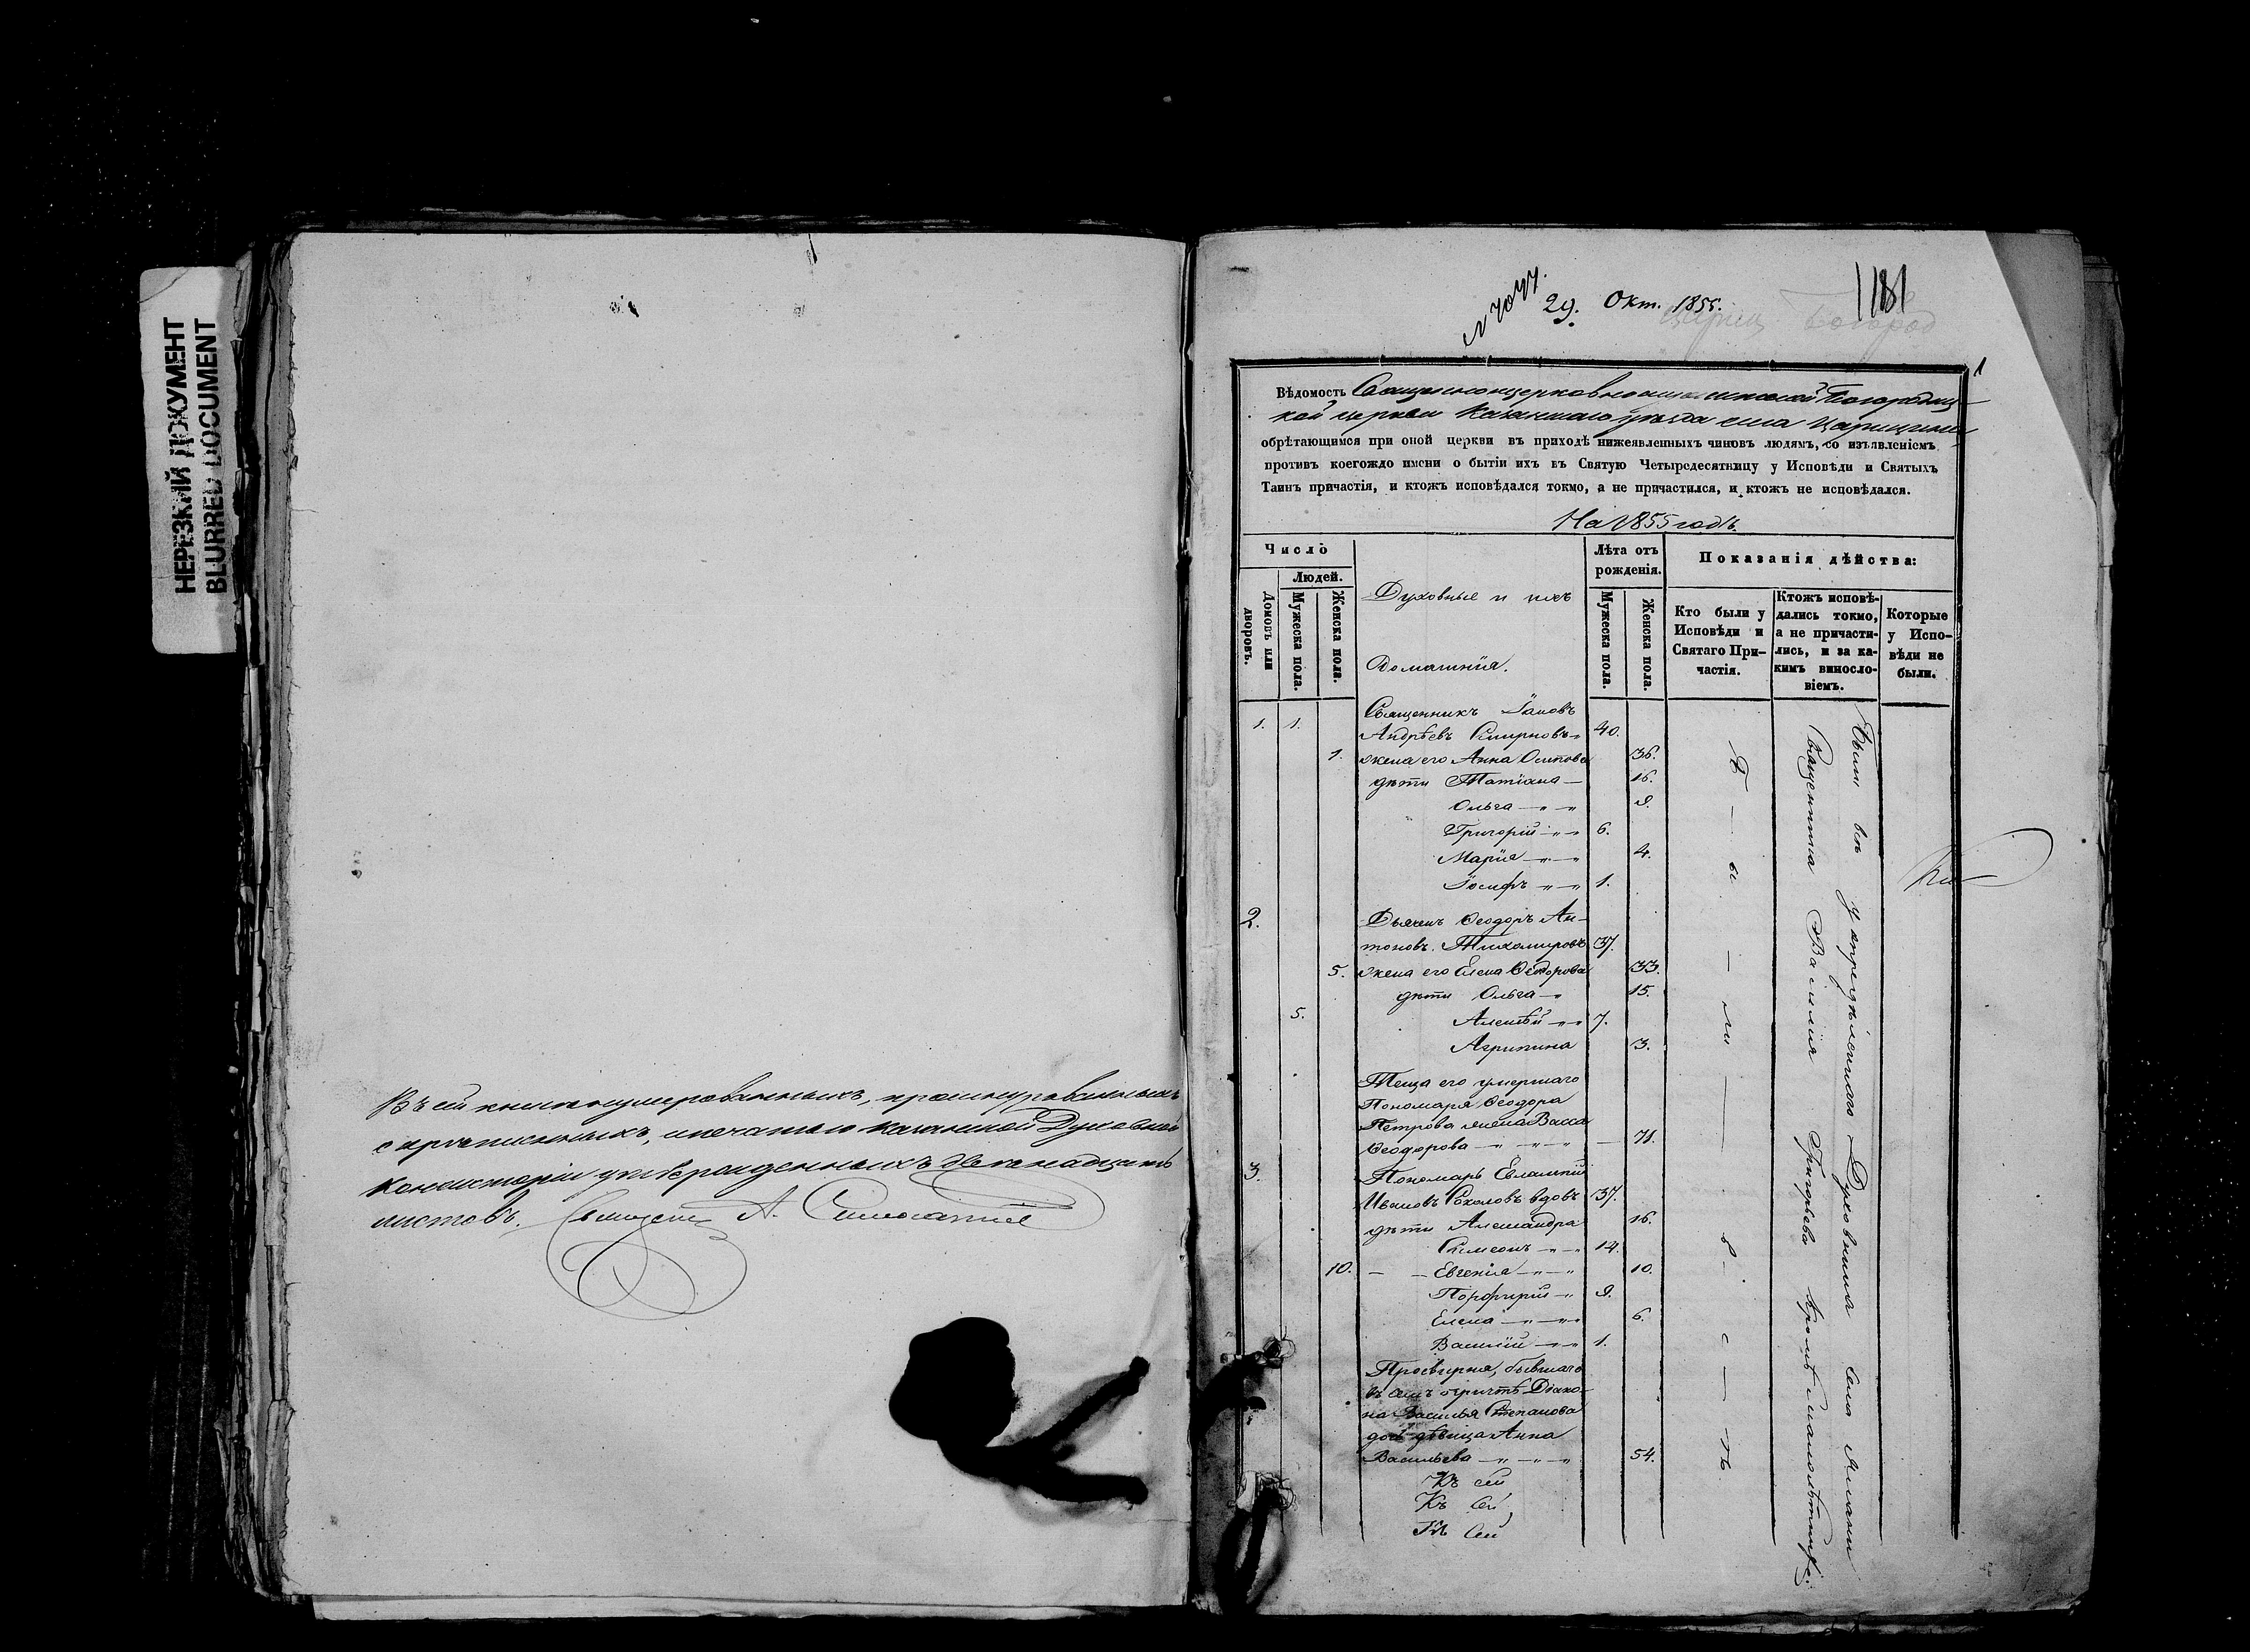 НЕРЕЗКИЙ ДОКУМЕНТ
BLURRED DOCUMENT
Въ сей книге нумерованныхъ, прошнурованныхъ
скрѣпленныхъ, и печатью Казанской Духовной
Консисторіи утвержденныхъ двенадцать
листовъ.
29. Окт. 1855.
Богород
1181
1
Вѣдомость Священноцерковно Богородиц-
кой церкви Казанскаго уѣзда села Царицына
обрѣтающимся при оной церкви въ приходѣ нижеявленныхъ чиновъ людямъ, со изъявленіемъ
противъ коегождо имени о бытіи ихъ въ Святую Четыредесятницу у Исповѣди и Святыхъ
Таинъ причастія, и ктожъ исповѣдался токмо, а не причастился, и ктожъ не исповѣдался.
На 1855 годъ.
Число
Людей.
Домовъ или дворовъ.
Мужеска пола.
Женска пола.
Духовные и ихъ
домашнія.
Лѣта отъ рожденія.
Мужеска пола.
Женска пола.
Показанія дѣйства:
Кто были у Исповѣди и Святаго При-частія.
Ктожъ исповѣ-дались токмо, а не причасти-лись, и за ка-кимъ винosло-віемъ.
Которые у Испо-вѣди не были.
1. 1. Священникъ Іаковъ
Андрѣевъ Смирновъ 40.
1. жена его Анна Осипова 36.
дѣти Татіана — 16.
Ольга — 9.
Григорій — 6.
Марія — 4.
Іосифъ — 1.
2. Дьячекъ Ѳеодоръ Ан-
тоновъ Тихомировъ 37.
5. жена его Елена Ѳедорова 33.
дѣти Ольга — 15.
5. Алексѣй — 7.
Агрипина 3.
Теща его умершаго
Пономаря Ѳеодора
Петрова жена Васса
Ѳеодорова — 71.
3. Пономарь Евлампій
Ивановъ Соколовъ вдовъ 37.
дѣти Александра 16.
Симеонъ — 14.
10. — Евгенія — 10.
Порфирій — 9.
Елена — 6.
Василій — 1.
Просвирня, бывшаго
въ семъ причтѣ Діако-
на Василья Степанова
дочь дѣвица Анна
Васильева — 54.
Къ сей
Къ сей
Къ сей
Б — ы — ли — в — с — ѣ
Были въ у Духовника села
Священника Василія Григорьева кромѣ малолѣтнихъ.